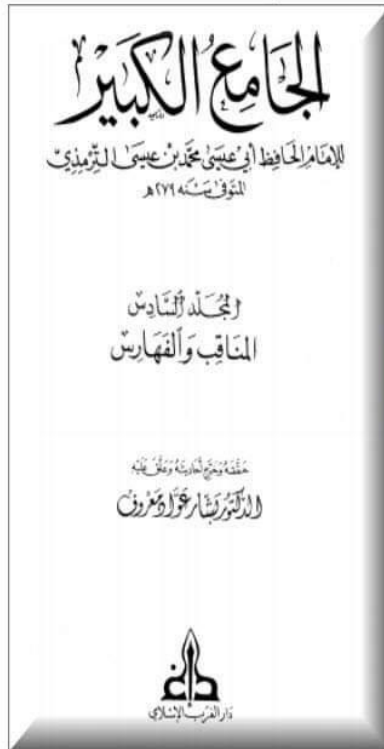 الجَامِعُ الكَبِيْر
للإمَامِ الحَافِظِ أَبِي عِيسَى مُحَمَّد بْن عِيسَى التِّرمِذِيّ
المتوَفى سَنَة ٢٧٩هـ
المُجَلّد السَّادِسْ
المنَاقِب وَالفَهَارِسْ
حَقّقَهُ وَخَرّجَ أحَاديثَهُ وَعَلّقَ عَلَيْه
الدكتور بَشّار عَوّاد مَعروف
دَار الغَربْ الإِسْلَامي